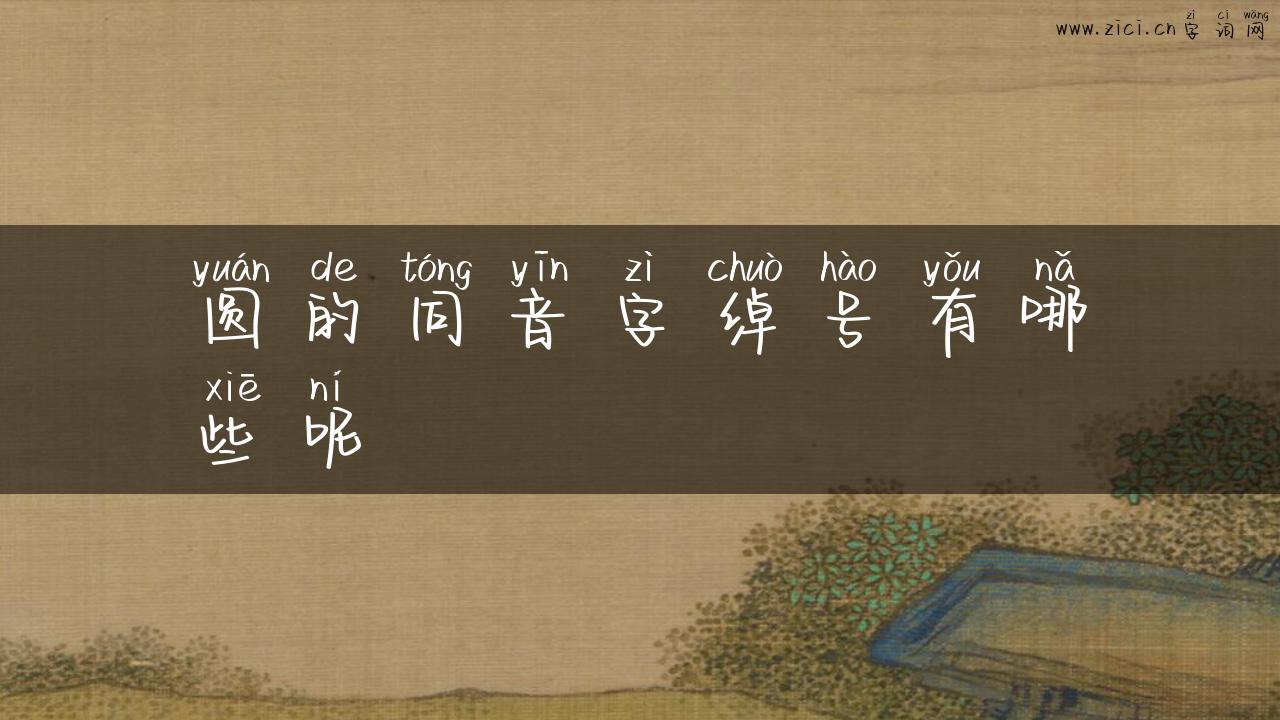 zì cí wǎng
www.zici.cn 字词网
yuán de tóng yīn zì chuò hào yǒu nǎ
圆的同音字绰号有哪
xiē ní
些呢